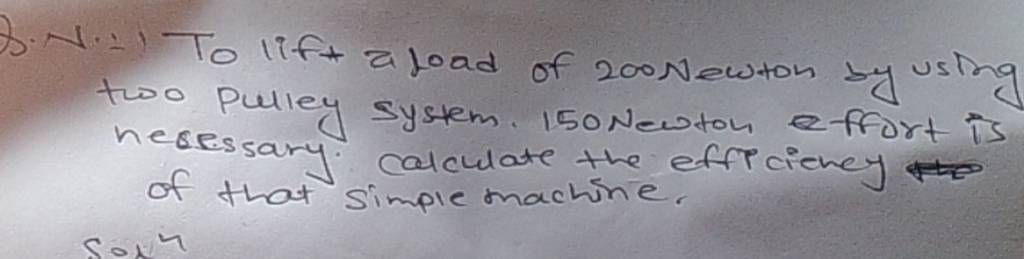 Q.N.:1 To lift a load of 200 Newton by using
two pulley system. 150 Newton effort is
necessary. calculate the efficiency
of that simple machine.
Soln